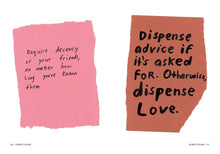 Require decency
of your friends,
no matter how
long you've known
them.
Dispense
advice if
it's asked
for. Otherwise,
dispense
Love.